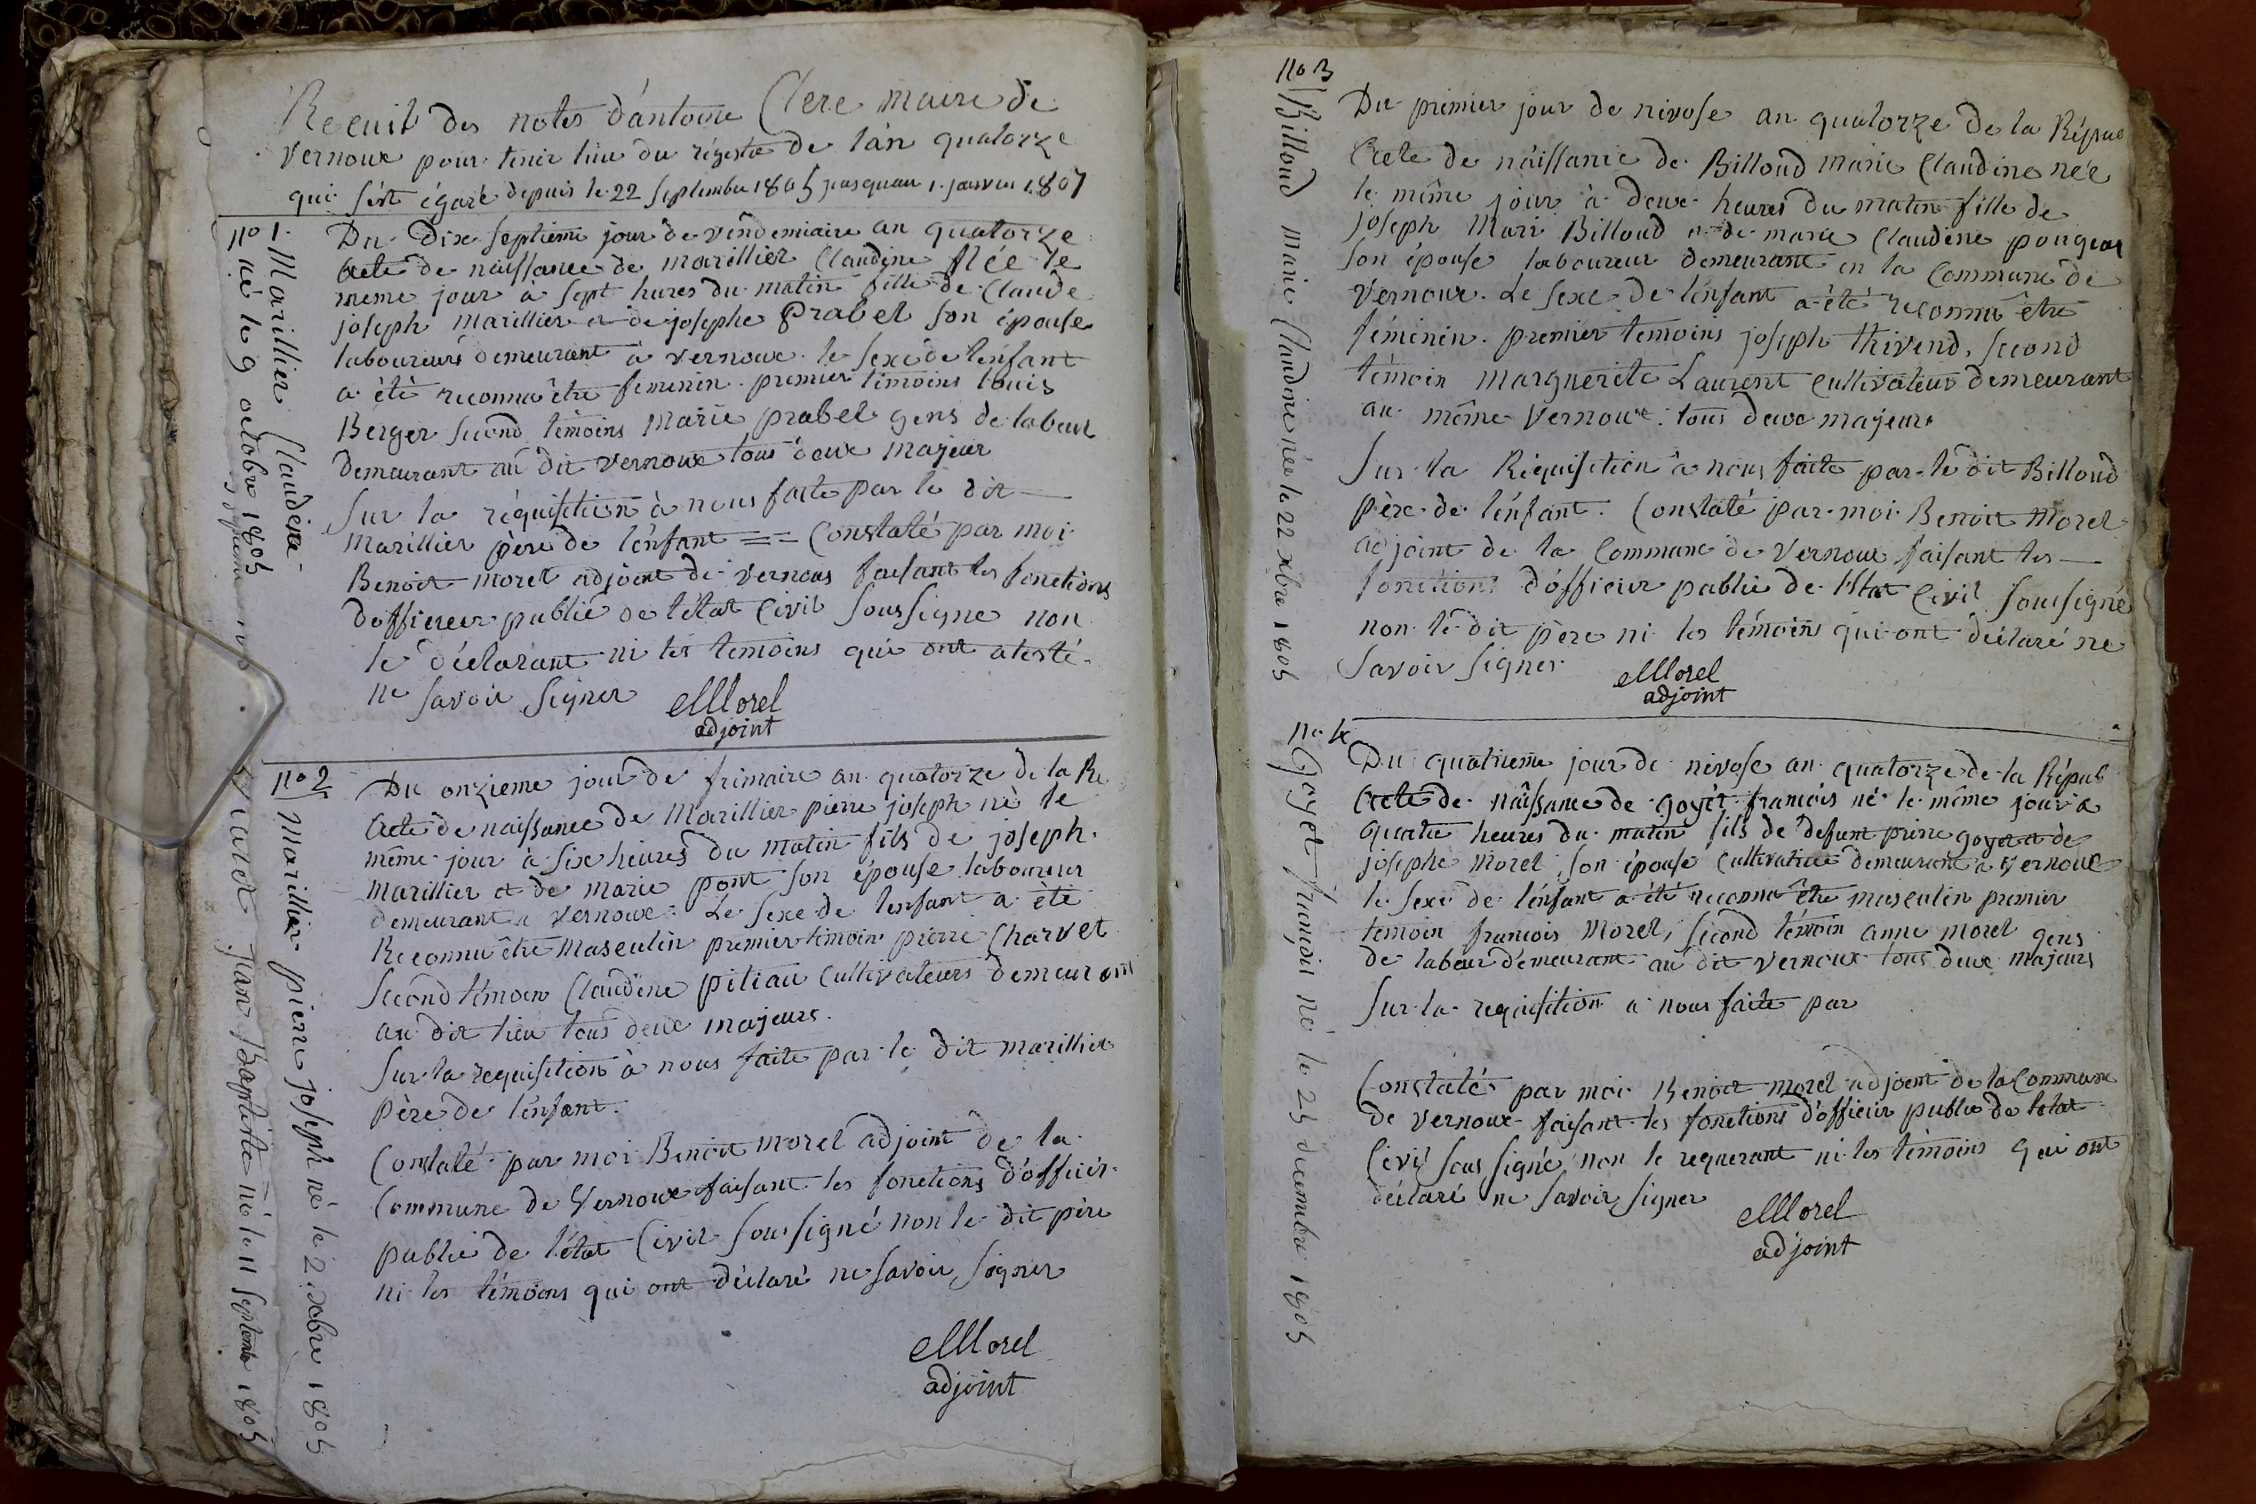 Recuit des notes d'antoine Clere maire de
Vernoux pour tenir lieu du régistre de l'an quatorze
qui s'est égaré depuis le 22 septembre 1805 jusquau 1. janvier 1807
no 1.
Marillier Claudine
né le 9 octobre 1805
Du Dix septieme jour de vendemiaire an quatorze
Acte de naissance de marillier Claudine Née le
meme jour à sept hures du matin fille de Claude
joseph marillier et de josephe Prabel son épouse
laboureurs demeurant à vernoux. le sexe de l'enfant
a été reconnu être feminin. premier témoins louis
Berger second témoins Marie prabel gens de labeur
demeurant au dit vernoux tous deux majeur
Sur la réquisition à nous faite par le dit
Marillier père de l'enfant == Constaté par moi
Benoit morel adjoint de vernoux faisant les fonctions
d'officier public de l'état Civil soussigne non
le déclarant ni les temoins qui ont atesté
ne savoir signer
Morel
adjoint
no 2
Marillier pierre joseph né le 2 xbre 1805
jean Baptiste né le 11 septembre 1805
Du onzieme jour de frimaire an quatorze de la Re
Acte de naissance de Marillier pierre joseph né le
même jour à six heures du matin fils de joseph
marillier et de marie pont son épouse laboureur
demeurant a vernoux. Le sexe de l'enfant a été
Reconnu être masculin premier témoin pierre Charvet
Second témoin Claudine pitiau Cultivateurs demeurant
au dit lieu tous deux majeurs.
Sur la requisition à nous faite par le dit marillier
Père de l'enfant.
Constaté par moi Benoit morel adjoint de la
Commune de Vernoux faisant les fonctions d'officier
public de l'état Civil soussigné non le dit père
ni les témoins qui ont déclaré ne savoir signer
Morel
adjoint
no 3
Billoud marie Claudine née le 22 xbre 1805
Du primier jour de nivose an quatorze de la Répub
Acte de naissance de Billoud marie Claudine née
le même jour à deux heures du matin fille de
joseph Marie Billoud et de marie Claudine
son épouse laboureur demeurant en la Commune de
Vernoux. Le sexe de l'enfant a été reconnu être
féminin. premier temoins joseph thivend, second
témoin marguerite Laurent Cultivateur demeurant
au même Vernoux. tous deux majeurs
Sur la Réquisition à nous faite par le dit Billoud
Père de l'enfant. Constaté par moi Benoit Morel
adjoint de la Commune de Vernoux faisant les
fonctions d'officier public de l'état Civil soussigné
non le dit père ni les témoins qui ont déclaré ne
savoir signer.
Morel
adjoint
no 4
Goyet francois né le 25 decembre 1805
Du quatrieme jour de nivose an quatorze de la Répub
Acte de naissance de Goyet francois né le même jour a
quatre heures du matin fils de defunt Goyet et de
josephe Morel son épouse Cultivatrice demeurant a vernoux
le sexe de l'enfant a été reconnu être masculin premier
temoin francois Morel, second témoin anne morel gens
de labeur demeurant au dit vernoux tous deux majeurs
Sur la requisition a nous faite par
Constaté par moi Benoit Morel adjoint de la Commune
de vernoux faisant les fonctions d'officier public de l'etat
Civil sous signé non le requerant ni les témoins qui ont
déclaré ne savoir signer
Morel
adjoint